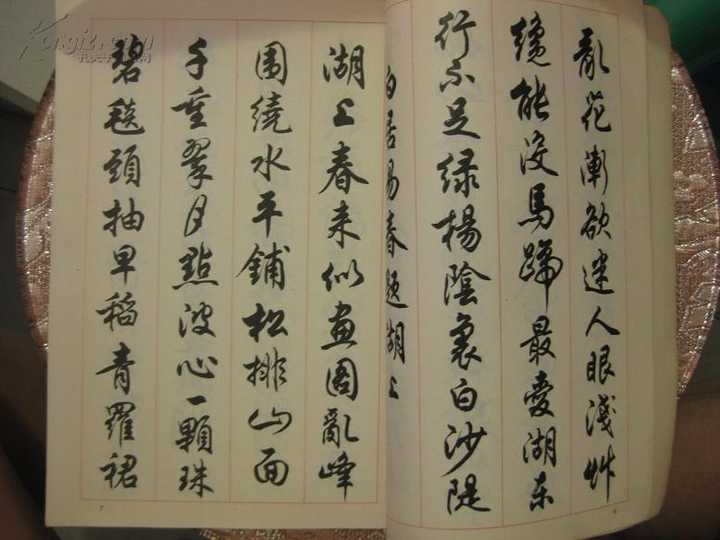 亂花漸欲迷人眼淺艸
纔能没馬蹄最愛湖东
行不足绿楊陰裏白沙隄
白居易春題湖上
湖上春来似畫圖亂峰
围繞水平鋪松排山面
千重翠月點波心一顆珠
碧毯頭抽早稻青羅裙
7